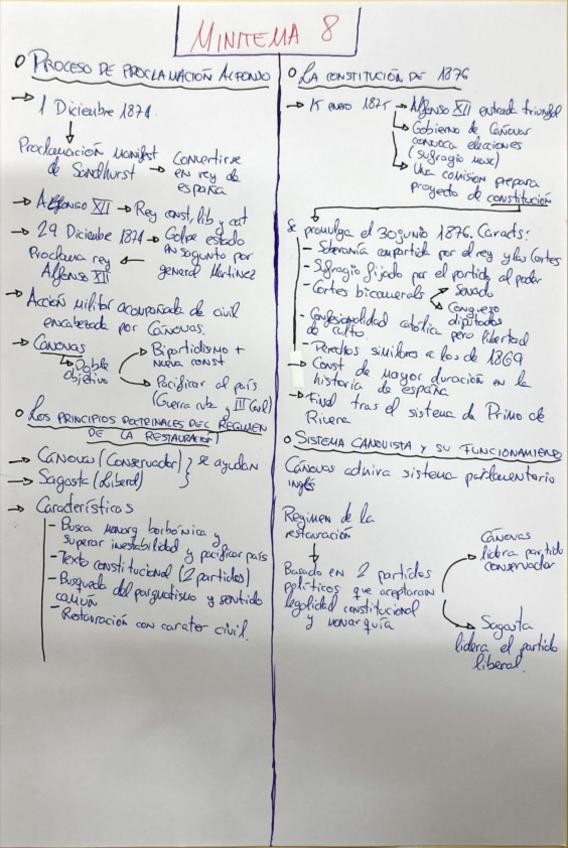 MINITEMA 8
O PROCESO DE PROCLAMACIÓN ALFONSO
→ 1 Diciembre 1874
↓
Proclamación Manifest
de Sandhurst → Convertirse
en rey de
españa
→ Alfonso XII → Rey const, lib y cat
→ 29 Diciembre 1874 → Golpe estado
en sagunto por
general Martínez
Proclama rey ←
Alfonso XII
→ Acción militar acompañada de civil
encabezada por Cánovas.
→ Cánovas
↳ Doble
objetivo
→ Bipartidismo +
nueva const
→ Pacificar el país
(Guerra cuba y III Civil)
O LOS PRINCIPIOS DOCTRINALES DEL REGIMEN
DE LA RESTAURACIÓN
→ Cánovas (Conservador) } se ayudan
→ Sagasta (Liberal) }
→ Características
- Busca monarq borbónica y
superar inestabilidad y pacificar país
- Texto constitucional (2 partidos)
- Busqueda del pragmatismo y sentido
común
- Restauración con carater civil.
O LA CONSTITUCIÓN DE 1876
→ 15 enero 1875 → Alfonso XII entrada triunfal
↳ Gobierno de Cánovas
convoca elecciones
(sufragio masc)
↳ Una comision prepara
proyecto de constitución
Se promulga el 30 junio 1876. Caracts:
- Soberanía compartida por el rey y las Cortes
- Sufragio fijado por el partido al poder
- Cortes bicamerals → Senado
→ Congreso
diputados
- Confesionalidad católica pero libertad
de culto.
- Derechos similares a los de 1869
→ Const de mayor duración en la
historia de españa
→ Final tras el sistema de Primo de
Rivera
O SISTEMA CANOVISTA Y SU FUNCIONAMIENTO
Cánovas admira sistema parlamentario
inglés
Regimen de la
restauración
↓
Basado en 2 partidos
políticos que aceptaran
legalidad constitucional
y monarquía
Cánovas
→ lidera partido
conservador
→ Sagasta
lidera el partido
liberal.